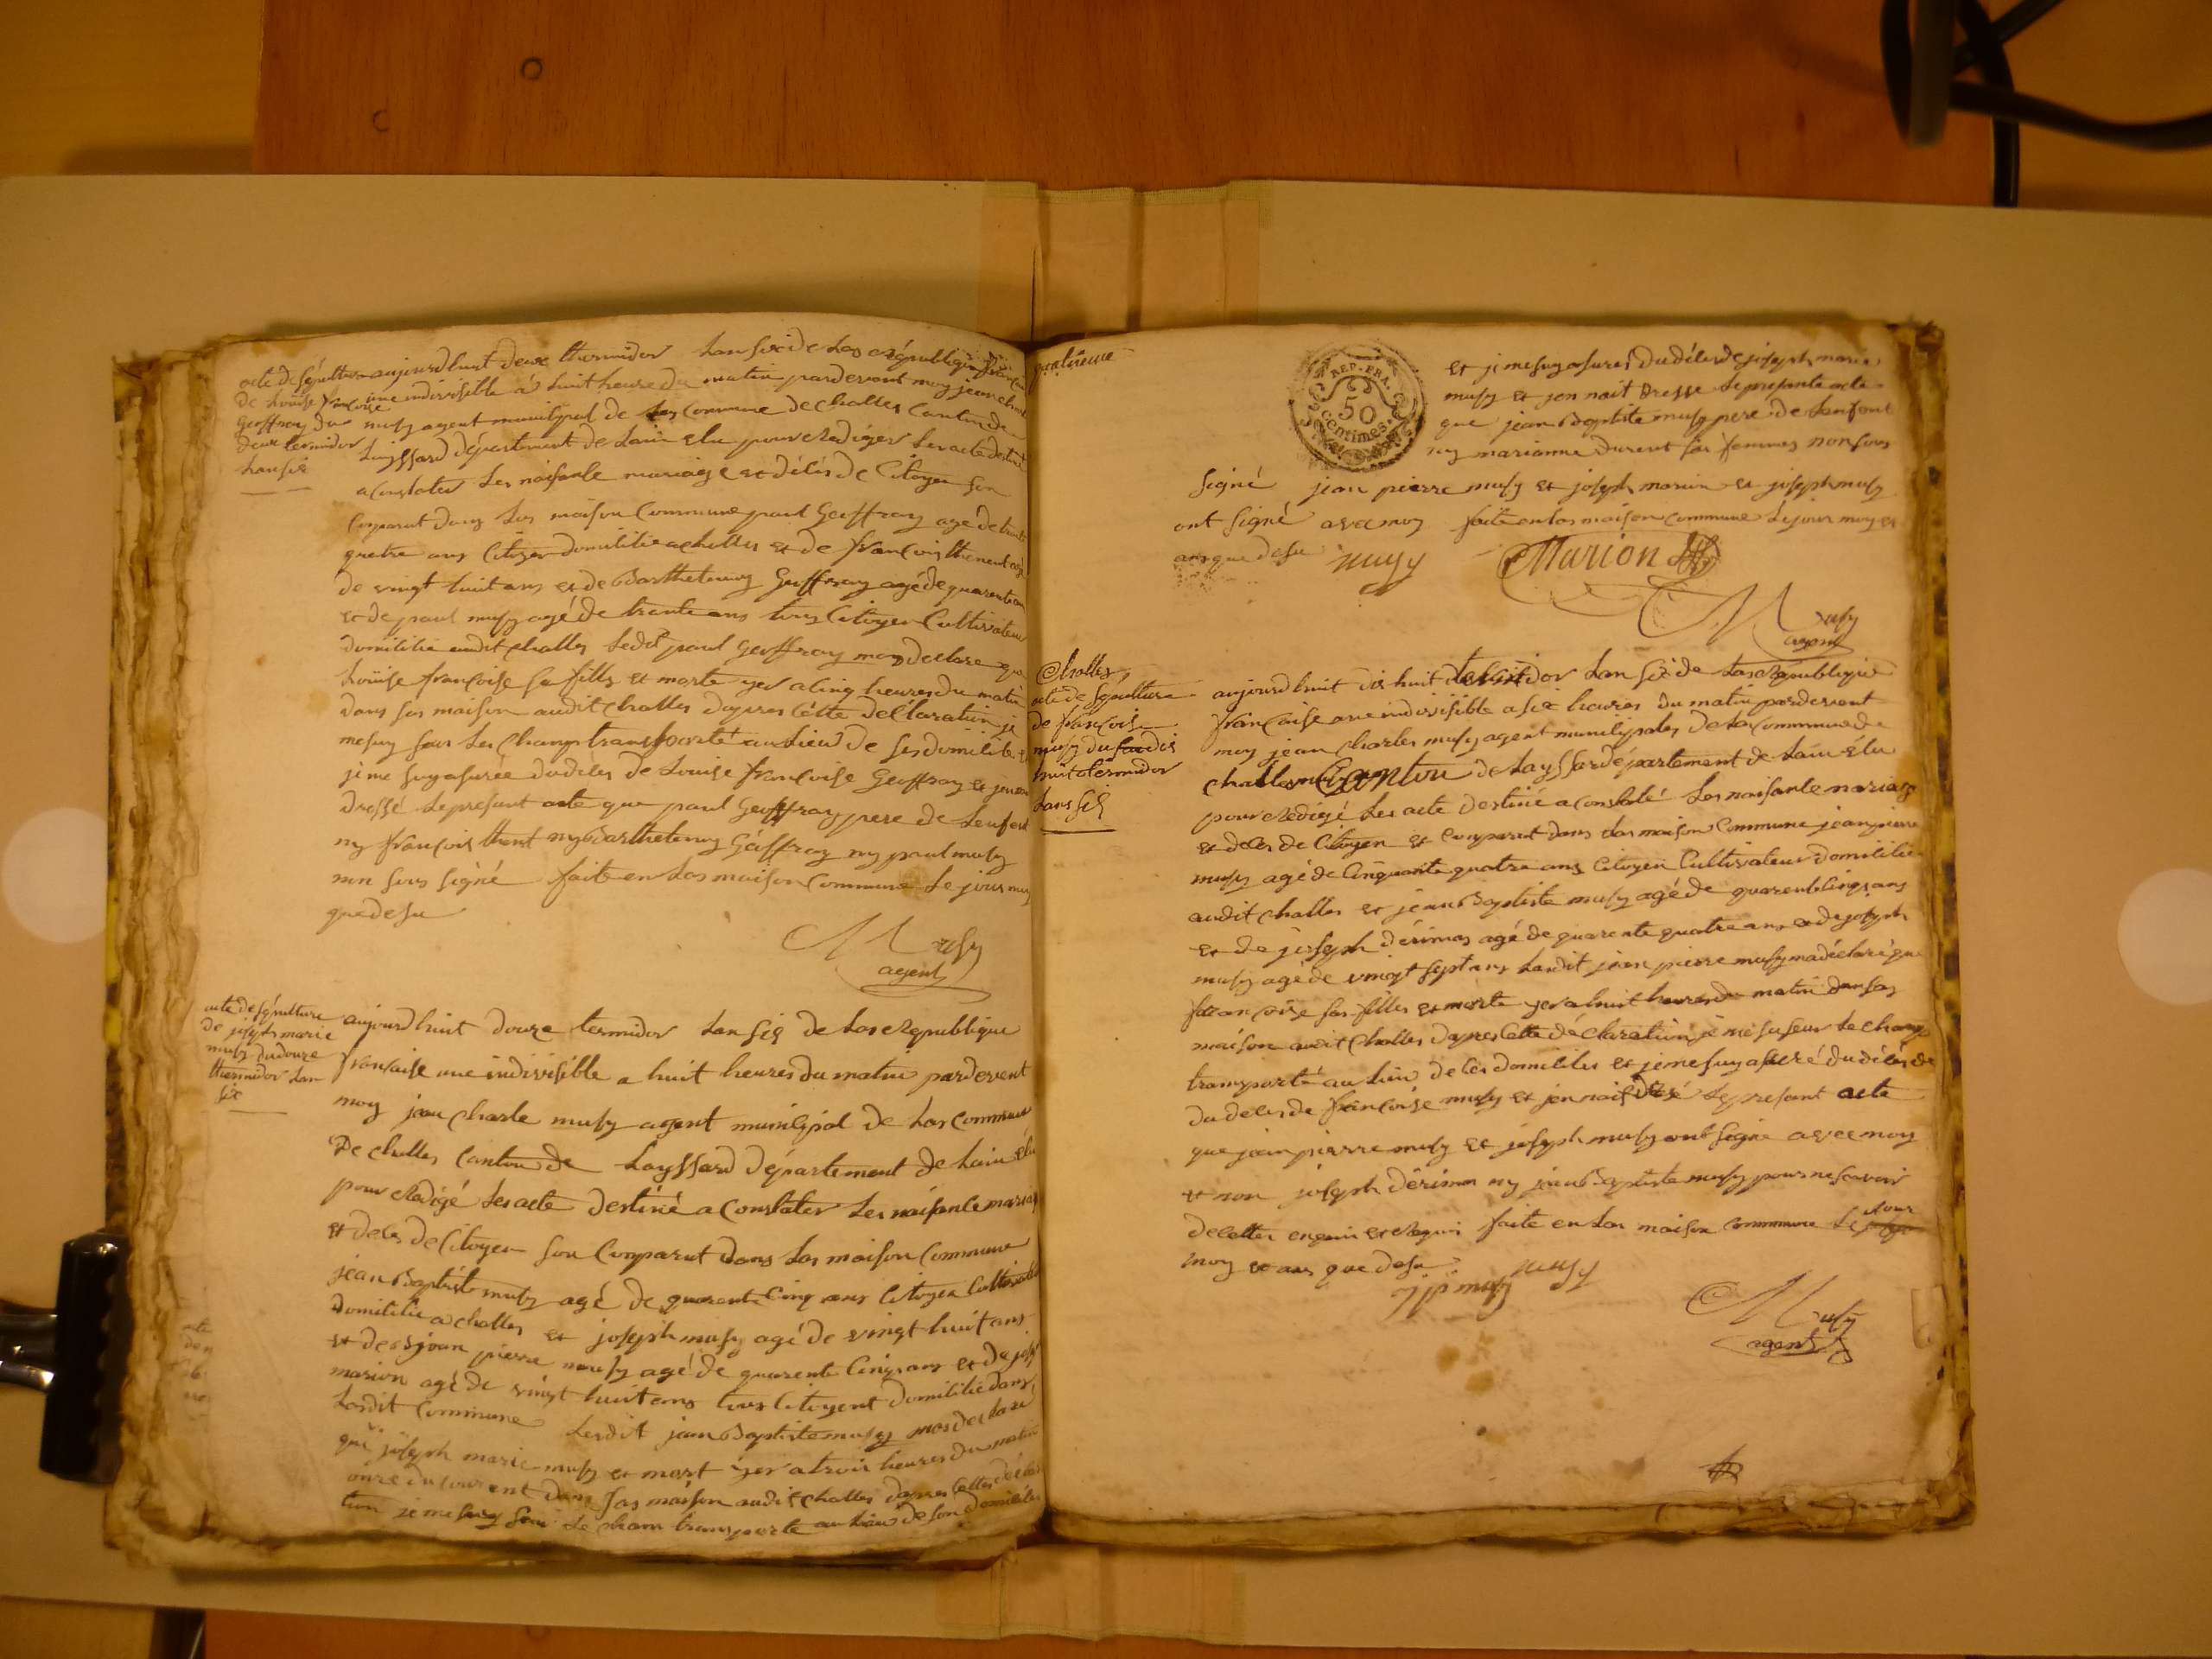 acte de sépulture
de Louise françoise
Geoffray du
deux termidor
Lan six
aujourdhuit deux thermidor Lan six de Las république francais
une indivisible a huit heure du matin pardevent moy jean charl
musy agent municipal de Las Commune de challes Canton de
Layssard département de Lain elu pour Rediger Les acte destiné
a Constater Les naisante mariage et délés de Citoyen son
Comparut dans Las maison Commune paul Geoffray agé de trente
quatre ans Citoyen domilitie a challes et de françois thenent agé
de vingt huit ans et de Barthelemy Geoffray agé de quarente ans
et de paul musy agé de trente ans tous Citoyen Cultivateur
domilitié audit challes Ledit paul Geoffray mas declare que
Louise françoise sa fille et morte yer a cinq heures du matin
dans sas maison audit challes dapres Cette declaration je
me suy sur Les Champ transporté au Lieu de ses domilile et
je me suy asurée du deles de Louise françoise Geoffray et jen ai
dressé Le present acte que paul Geoffray pere de Lenfent
ny françois thent ny Barthelemy Géoffray ny paul musy
non sous signé faite en Las maison Commune Le jour moy
que desu
Musy
agent
acte de sépulture
de joseph marie
musy du douze
thermidor Lan
six
aujourdhuit douze termidor Lan six de Las Republique
française une indivisible a huit heures du matin pardevent
moy jean Charle musy agent municipal de Las Commune
De challes Canton de Layssard département de Lain élu
pour Redigé Les acte destiné a Constater Les naisante mariage
et deles de Citoyen son Comparut dans Las maison Commune
jean Baptiste musy agé de quarente Cinq ans Citoyen Cultivateur
domilitie a challes et joseph musy agé de vingt huit ans
et de jean pierre musy agé de quarente Cinq ans et de joseph
marion agé de vingt huit ans tous Citoyent domilitié dans
Lasdit Commune Lesdit jean Baptiste musy mas declaré
que joseph marie musy et mort yer a trois heures du matin
onze du courent dans sas maison audit challes dapres Cettes décla
tion je me suy sur Le cham transporte au Lieu de son domiliter
quatrieme
REP. FRA.
50
centimes.
et je me suy asures du déles de joseph marie
musy et jen nait dresse Le presante acte
que jean Baptiste musy pere de Lenfent
ny marianne durent sas femmes non sous
signé jean pierre musy et joseph marion et joseph musy
ont signé avec moy faite en Las maison commune Le jour moy et
ans que desu
musy
Marion
Musy
agent
Challes
acte de sépulture
de françois
musy du dis
huit termidor
Lans six
aujourdhuit dix huit termidor Lan six de Las République
française une indivisible a six heures du matin pardevent
moy jean Charles musy agent municipales de Las Commune de
challes Canton de Layssar département de Lain élu
pour Redigé Les acte destiné a constaté Les naisante mariage
et deles de Citoyen et Comparut dans Las maison Commune jean pierre
musy agé de Cinquante quatre ans Citoyen Cultivateur domilitie
audit challes et jean Baptiste musy agé de quarente Cinq ans
et de joseph dérimas agé de quarente quatre ans et de joseph
musy agé de vingt sept ans Lasdit jean pierre musy ma déclaré que
francoise sas filles et morte yer a huit heures du matin dans sas
maison audit Challes dapres Cette déclaration je me su sur Le champ
transporté au Lieu de Les domiliter et je me suy asuré du délés de
du deles de françoise musy et jen nait dresé Le present acte
que jean pierre musy et joseph musy ont signe avec moy
et non joseph dérimas ny jean Baptiste musy pour ne savoir
de cette enquis et Requis faite en Las maison Commune Le jour
moy et ans que desu
jjp musy
musy
Musy
agent